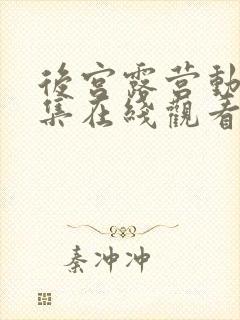 後宮露营動
集在綫觀看
秦冲冲